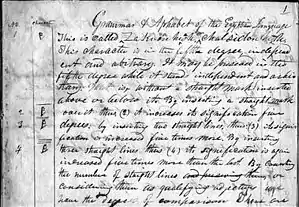 1
Grammar & Alphabet of the Egyptian Language
This is called Za Kioan hiash, or chalsidon hitts
This character is in the fifth degree, independ
ent and arbitrary. It may be preserved in the
fifth degree while it stands independent and arbitrary
That is, without a straight mark inserted
above or below it. By inserting a straight mark
over it thus (2) it increases its signification five
degrees: by inserting two straight lines, thus: (3) its signi
fication is increased five times more. By inserting
three straight lines thus (4) its signification is again
increased five times more than the last. By counting
the number of straight lines and
considering them as qualifying adjectives we
have the degrees of comparison There are
2
3
4